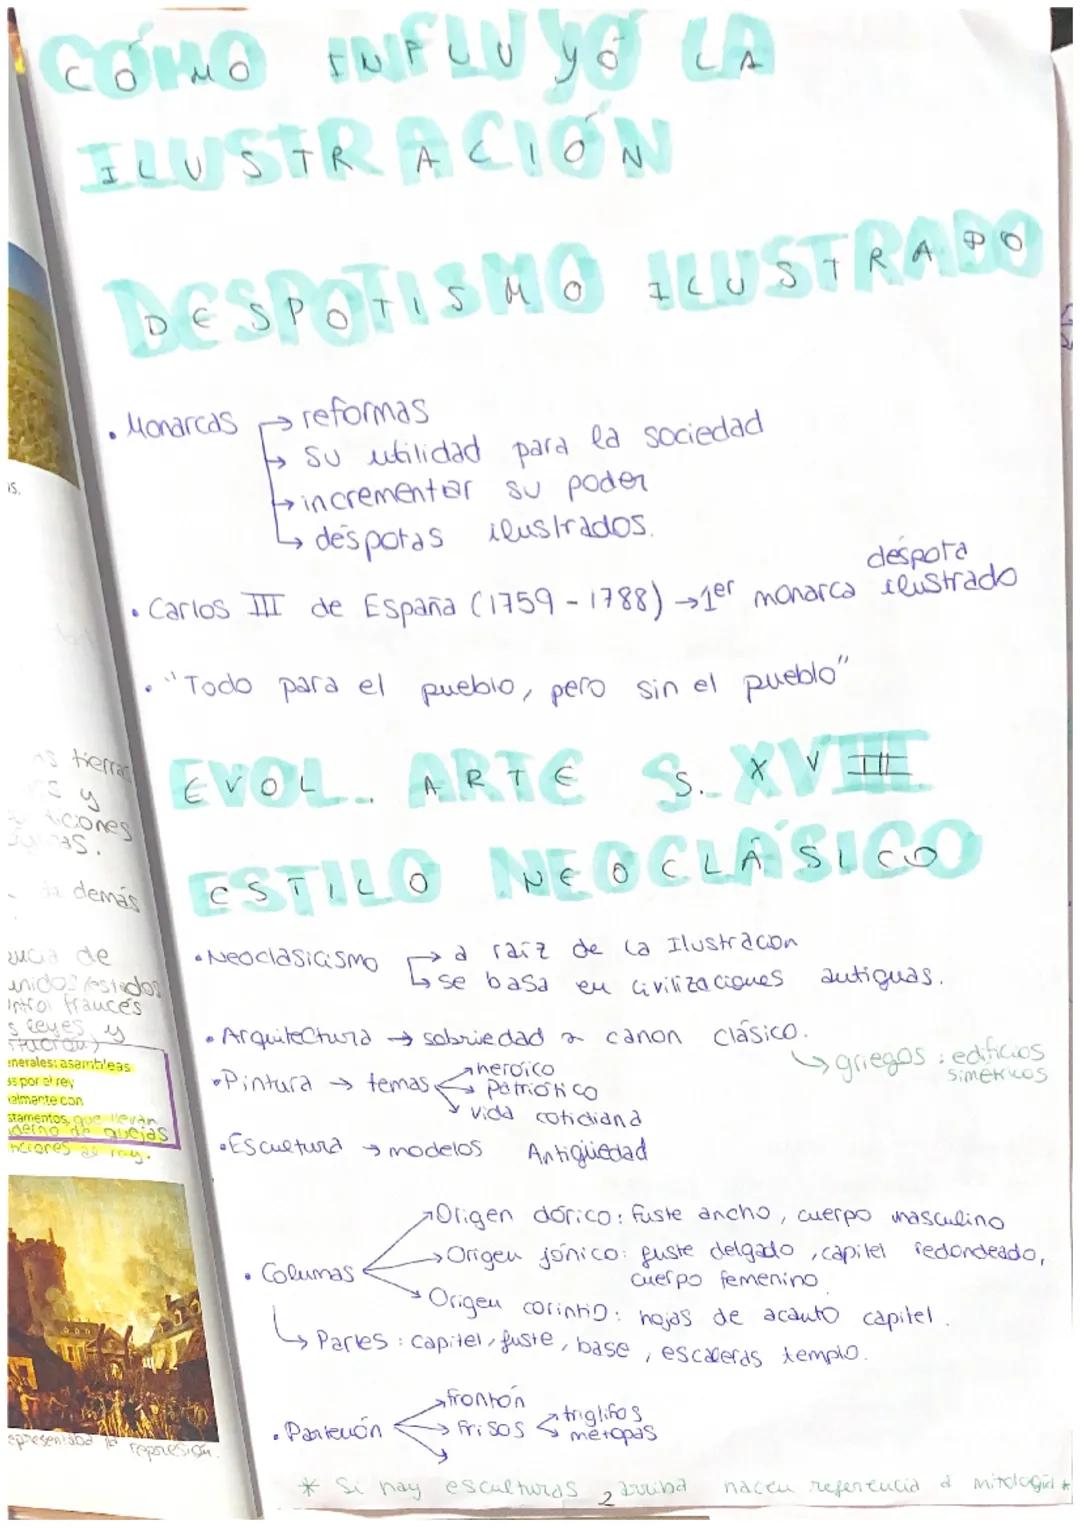 CÓMO INFLUYÓ LA
ILUSTRACIÓN
DESPOTISMO ILUSTRADO
• Monarcas → reformas
→ su utilidad para la sociedad
→ incrementar su poder
→ déspotas ilustrados.
• Carlos III de España (1759-1788) → 1er monarca déspota ilustrado
• "Todo para el pueblo, pero sin el pueblo"
EVOL. ARTE S. XVIII
ESTILO NEOCLÁSICO
• Neoclasicismo → a raíz de la Ilustracion
→ se basa en civilizaciones antiguas.
• Arquitectura → sobriedad canon clásico.
→ griegos: edificios simétricos
• Pintura → temas → heroico
→ patriótico
→ vida cotidiana
• Escultura → modelos Antigüedad
• Columas → Origen dórico: fuste ancho, cuerpo masculino
→ Origen jónico: fuste delgado, capitel redondeado,
cuerpo femenino
→ Origen corintio: hojas de acanto capitel.
→ Partes: capitel, fuste, base, escaleras templo.
• Partenón → frontón
→ frisos → triglifos
→ metopas
* Si hay esculturas arriba hacen referencia a mitología *
2
is.
tierras
y
demás
de
francés
s leyes y
enerales: asambleas
as por el rey
almente con
stamentos, que llevan
quejas
represión.